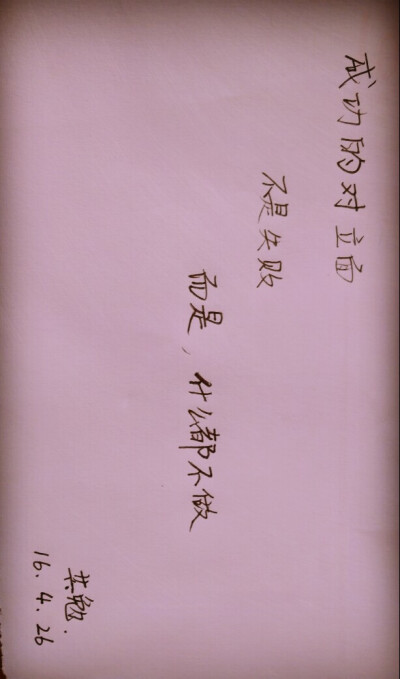 成功的对立面
不是失败
而是，什么都不做
共勉.
16.4.26